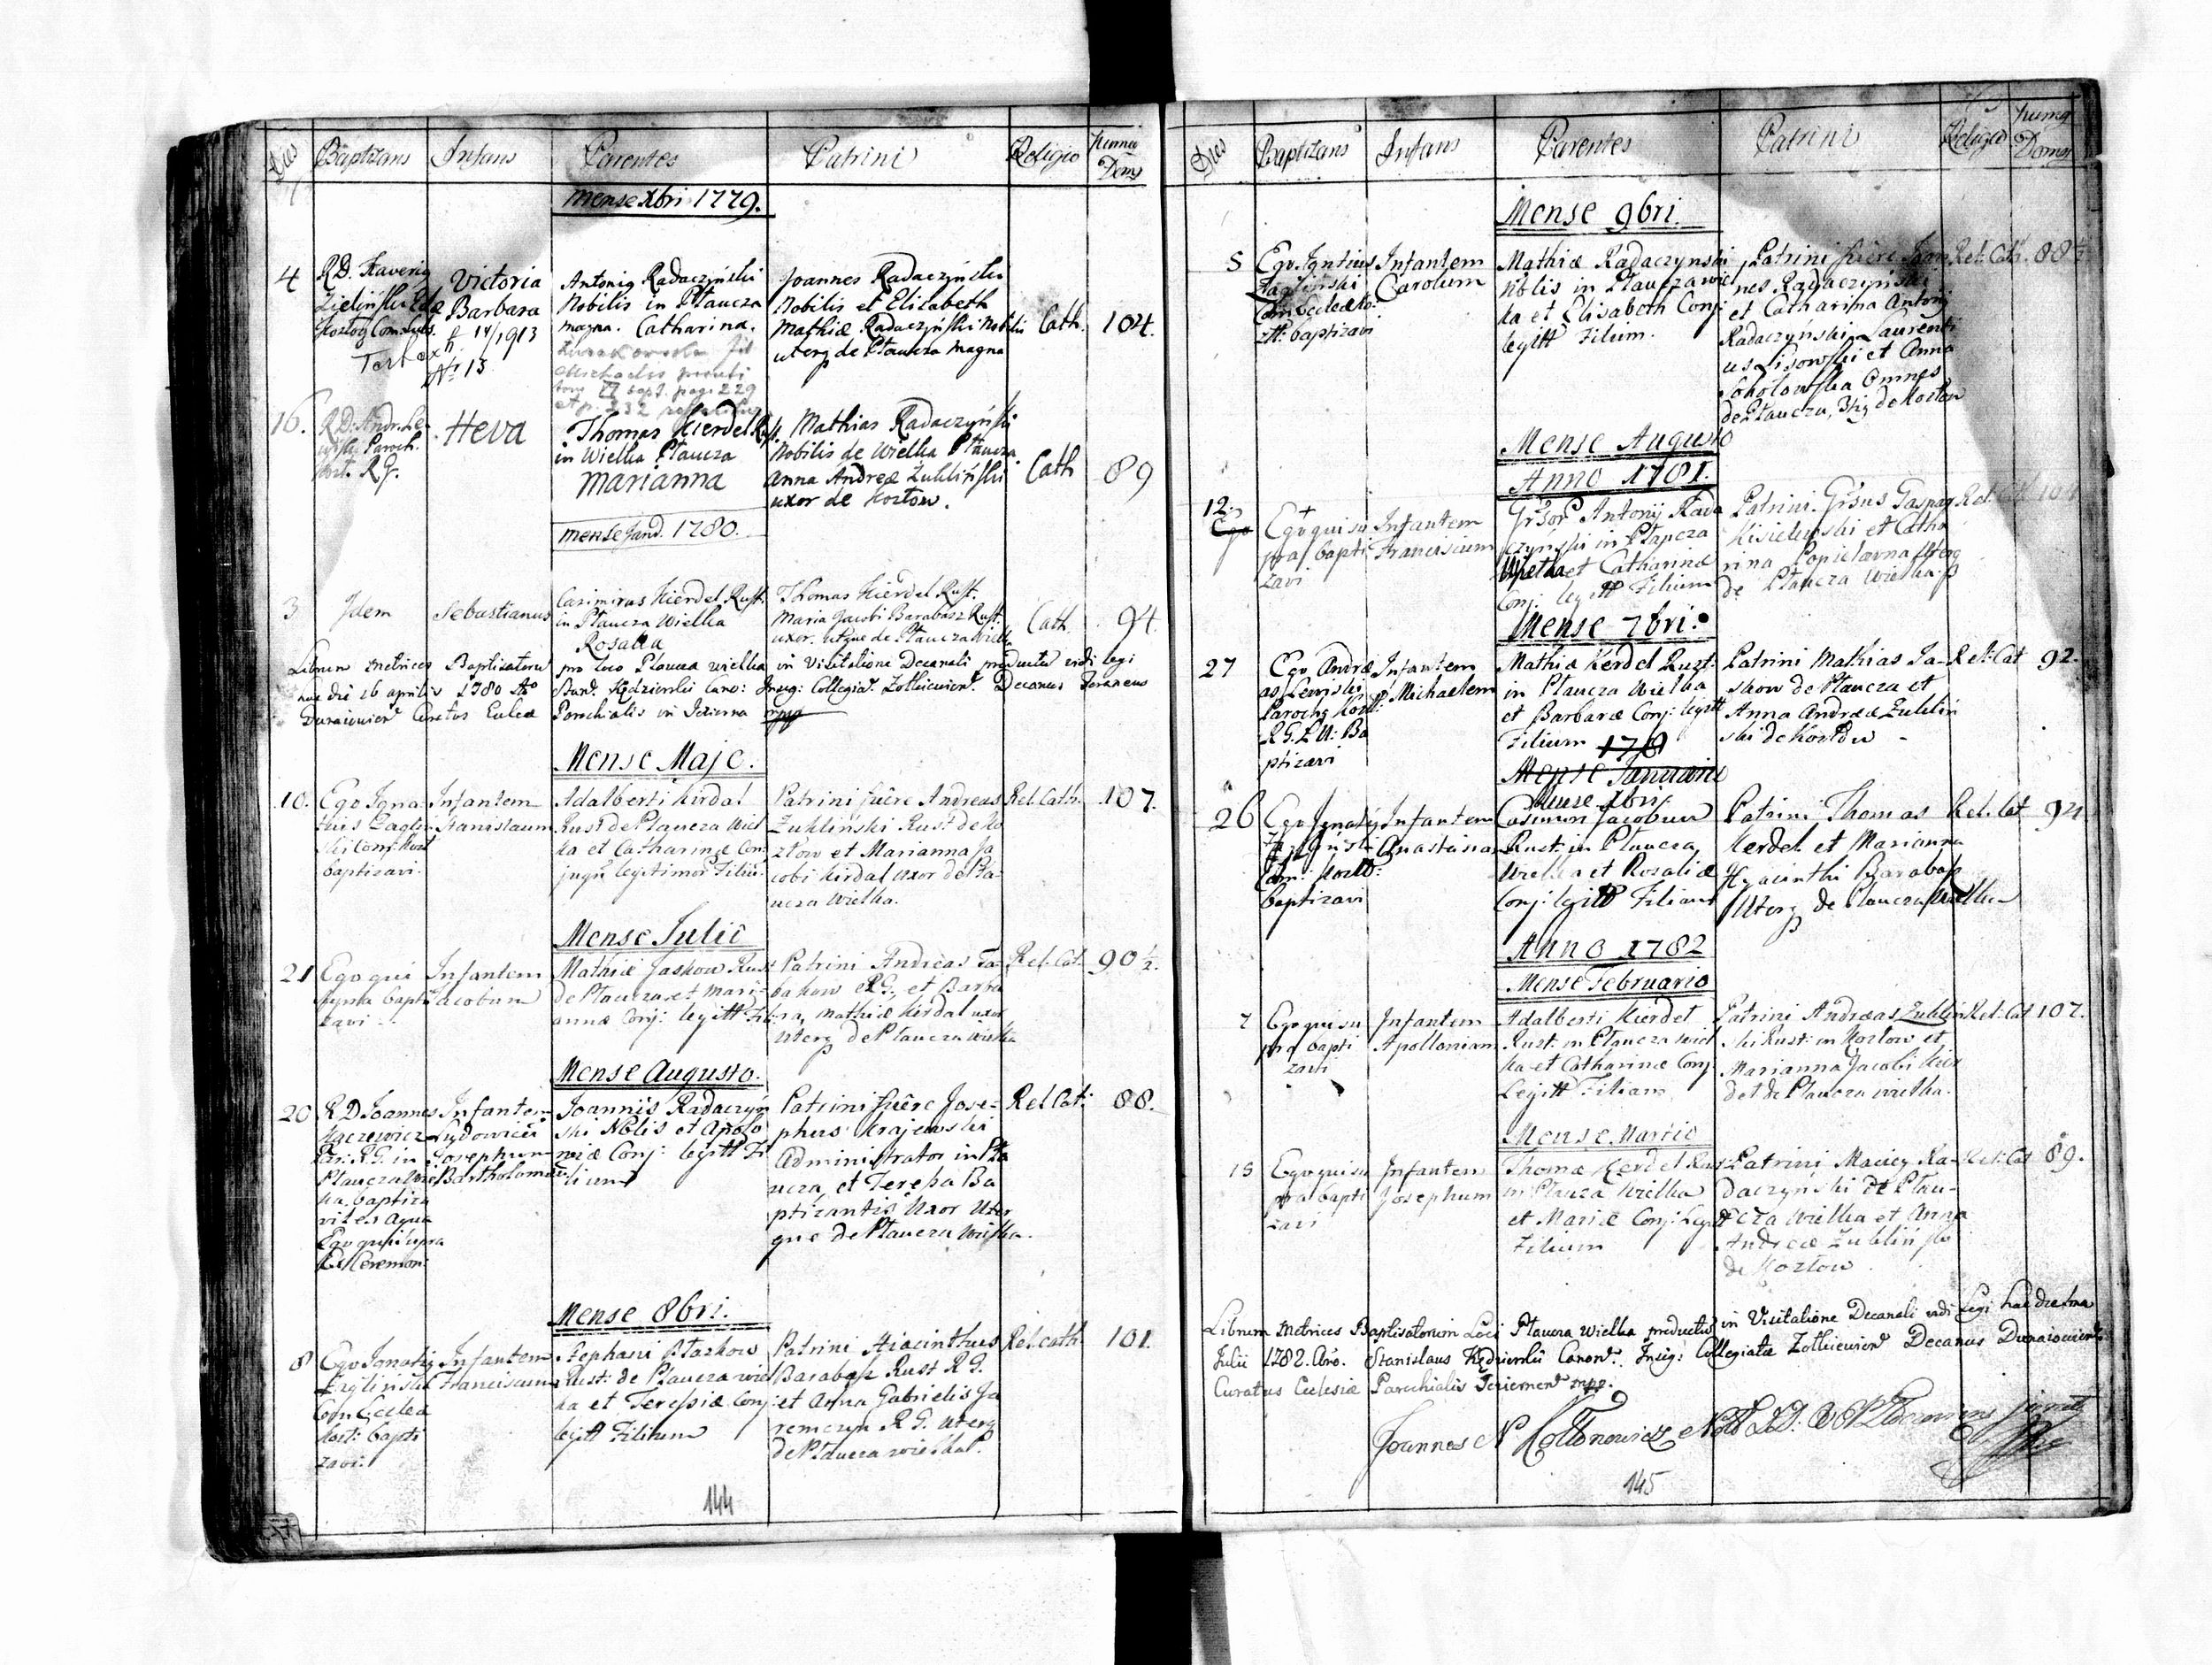 Dies Baptizans Infans Parentes Patrini Religio Numq Domq
Mense Xbri 1779.
4
R.D. Xaverig
Victoria
Barbara
14/1913
Nr 13
Antonig Radaczyński
Nobilis in Płaucza
magna. Catharina.
Joannes Radaczyński
Nobilis et Elisabeth
Mathiæ Radaczyński Nobilis
uterq de Płaucza magna
Cath. 104.
16.
R.D. Andr. Le-
wiski Paroch.
Kozt. R.G.
Heva
Thomas Kierdel Rust.
in Wielka Płaucza
Marianna
Mathias Radaczyński
Nobilis de Wielka Płaucza
Anna Andreæ Zukliński
uxor de Kozłow.
Cath 89
mense Janu. 1780.
3 Idem Sebastianus
Casimirus Kierdel Rust.
in Płaucza Wielka
Rosalia
Thomas Kierdel Rust.
Maria Jacobi Barabasz Rust.
uxor. utque de Płaucza Wielka
Cath. 94.
Librum Metrices Baptisatoru pro loco Płaucza wielka in Visitatione Decanali productu vidi legi
hac die 16 aprilis 1780 Ao Stan. Kędzierski Cano: Insig: Collegia. Zolkiewien. Decanus
Curatus Ecclæ Parochialis in mpp
Mense Majo.
10.
Ego Igna-
tius Zaglin-
ski Com: Kozt
baptizavi.
Infantem
Stanislaum
Adalberti Kirdal
Rust de Płaucza Wiel
ka et Catharinæ Con
jugu legitimor Filiu.
Patrini fuêre Andreas
Zukliński Rust de Ko
złow et Marianna Ja
cobi Kirdal uxor de Pła-
ucza Wielka.
Rel. Cath. 107.
Mense Julio
21
Ego qui
supra bapti
zavi
Infantem
Jacobum
Mathiæ Jaskow Rust
de Płaucza et Mari-
annæ Conj: legitt Fili
Patrini Andreas
R.G. et Barba
ra, Mathiæ Kirdal uxor
uterq de Płaucza wielka
Rel. Cat. 90 ½.
Mense Augusto.
20
R.D. Joannes
Kaczewicz
Par: R.G. in
Płaucza Wiel
ka baptiza
vit ex aqua
Ego qui supra
Infantem
Ludovicū
Josephum
Bartholomæū
Joannis Radaczyń
ski Nblis et Apolo
niæ Conj: legitt Fi
lium
Patrini fuêre Jose-
phus Krajewski
Administrator in Pła
ucza, et Teresa Ba
ptizantis Uxor Uter
que de Płaucza Wielka.
Rel Cat: 88.
Mense 8bri.
8
Ego Ignatig
Zagliński
Com Eccleæ
Kozt: bapti
zavi.
Infantem
Franciscum
Stephani Ptazkow
Rust: de Płaucza wiel
ka et Teresiæ Conj:
legitt Filium
Patrini Hiacinthus
Barabasz Rust R.G.
et Anna Gabrielis Ja
remczyn R.G. uterq
de Płaucza wielka.
Rel. cath. 101.
144
Dies Baptizans Infans Parentes Patrini Religio Numq Domq
Mense 9bri.
5
Ego Igntius
Zagliński
Com Eccleæ Ko-
złt: baptizavi
Infantem
Carolum
Mathiæ Radaczynski
Nblis in Płaucza wiel
ka et Elisabeth Conj
legitt Filium.
Patrini fuêre Joan
nes Radaczyński
et Catharina Antonij
Radaczyński Laurenti
us Lisowski et Anna
Sokołowska Omnes
de Płaucza, 3tiq de Kozłow
Rel. Cath. 88 ½
Mense Augusto
Anno 1781.
12.
Ego
Ego qui su
pra bapti
zavi
Infantem
Franciscum
Grsor Antonij Rada
czynski in Płaucza
Wielka et Catharinæ
Conj: legitt Filium
Patrini. Grsus Gaspar
Kisielewski et Catha
rina Popielarna Uterq
de Płaucza Wielka.
Rel. Cat 104
Mense 7bri.
27
Ego Andre
as Lewiski
Parochq Kozłt:
R.G. L.U: Ba
ptizavi
Infantem
Michaelem
Mathiæ Kerdel Rust:
in Płaucza Wielka
et Barbaræ Conj: legitt
Filium 178
Mense Januario
Patrini Mathias Ja-
skow de Płaucza et
Anna Andreæ Zuklin
ski de Kozłow
Rel: Cat 92.
Mense Xbri
26
Ego Ignatij
Zaglinski
Com: Kozłt:
baptizavi
Infantem
Anastasiam
Casimiri Jacobus
Rust: in Płaucza
Wielka et Rosaliæ
Conj: legitt Filiam
Patrini Thomas
Kerdel et Marianna
Hyacinthi Barabasz
Uterq de Płaucza Wielka
Rel. Cat 94
Anno 1782
Mense Februario
7
Ego qui su
pra bapti
zavi
Infantem
Apolloniam
Adalberti Kierdet
Rust: in Płaucza wiel
ka et Catharinæ Conj
Legitt Filiam
Patrini Andreas Zuklin
ski Rust: in Kozłow et
Marianna Jacobi Kier
det de Płaucza wielka.
Rel: Cat 107.
Mense Martio
15
Ego qui su
pra bapti
zavi
Infantem
Josephum
Thomæ Kerdel Rus:
in Płaucza Wielka
et Mariæ Conj: Legitt
Filium
Patrini Maciey Ra-
daczyński de Płau-
cza Wielka et Anna
Andreæ Zuklińsko
de Kozłow
Rel: Cat 89.
Librum Metrices Baptisatorum Loci Płaucza Wielka productu in Visitatione Decanali vidi Legi hac die
Julii 1782. Ano. Stanislaus Kędzierski Canon. Insig: Collegiatæ Zolkiewien Decanus Dunaiowien
Curatus Eclesiæ Parochialis mpp.
Joannes N
145